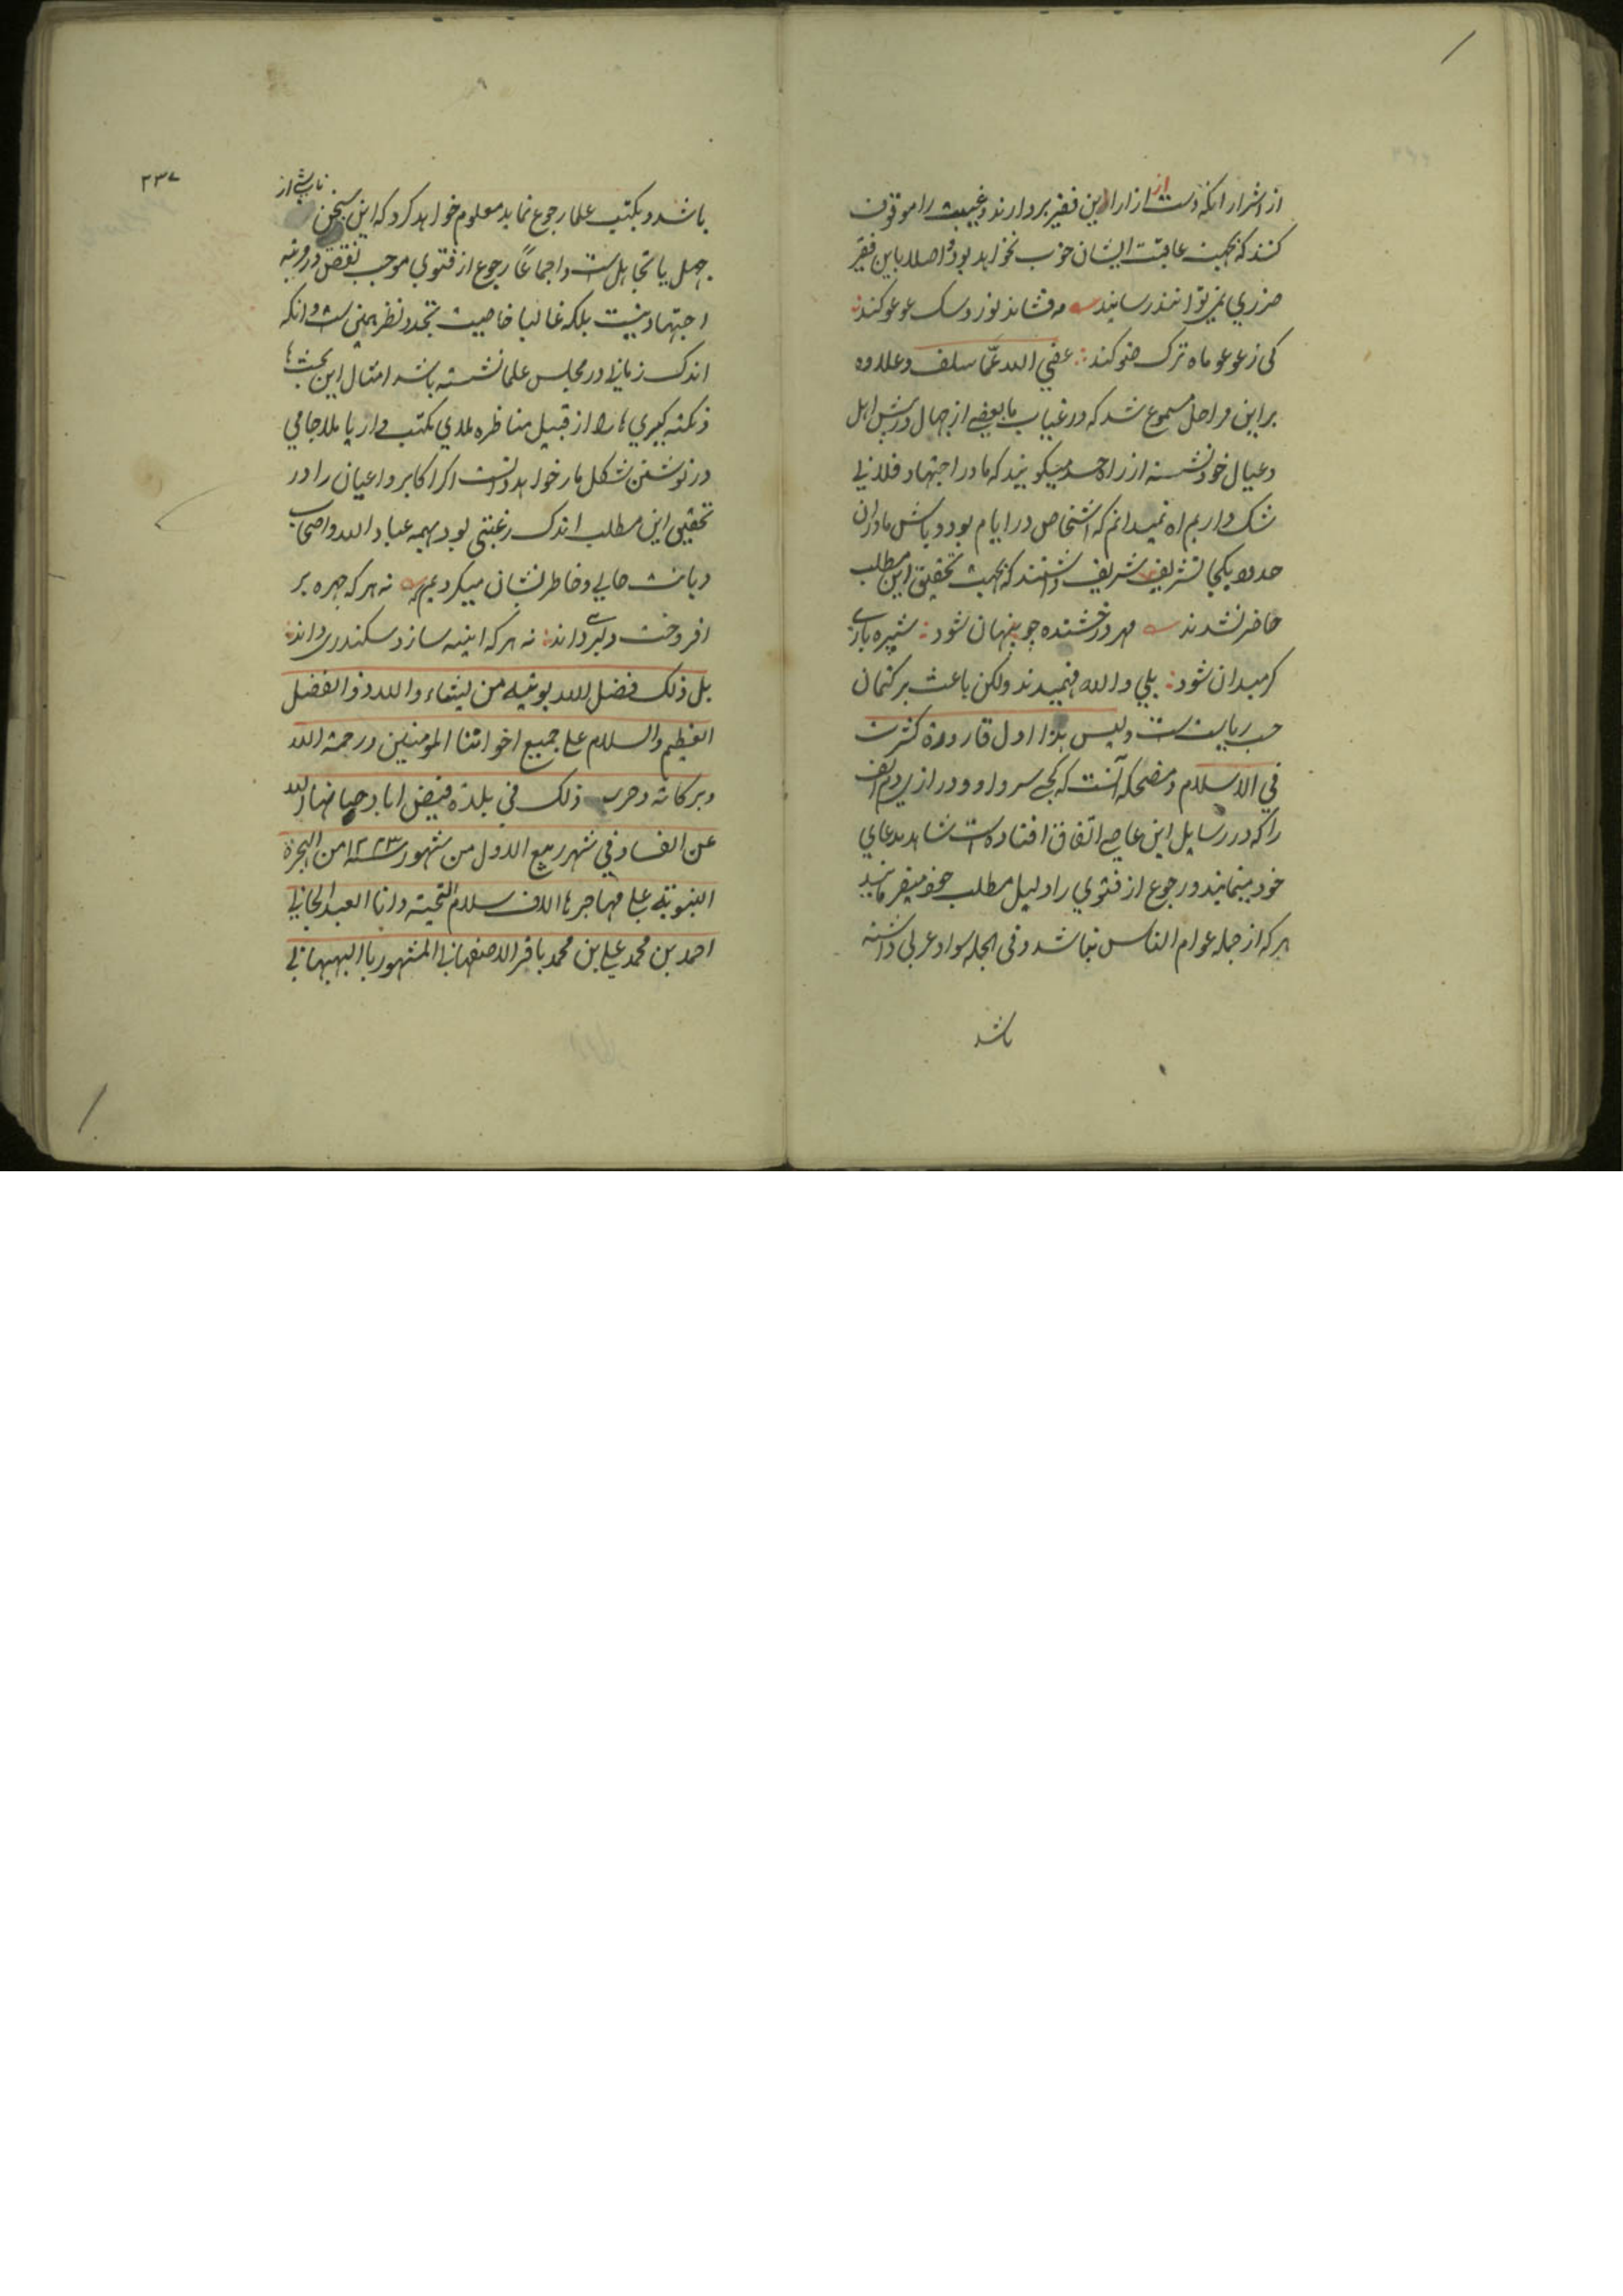 از اشرار انکه دست از ازار این فقیر بردارند و غیبت را موقوف
کنند که بجهت عاقبت ایشان خوب نخواهد بود و اصلا باین فقیر
ضرری نمیتوانند رسانید مه فشاند نور و سک عوعو کند
کی ز عوعو ماه ترک ضو کند عفی الله عمّا سلف و علاوه
براین مراحل مسموع شد که در غیاب ما بعضی از جهال در پیش اهل
و عیال خود نشسته از راه حسد میکویند که ما در اجتهاد فلانی
شک داریم اه نمیدانم که اشخاص در ایام بود و باش ما در ان
حدود بکجا تشریف شریف داشتند که بجهت تحقیق این مطلب
حاضر نشدند مهر درخشنده چو پنهان شود شپره بازی
کر میدان شود بلی والله فهمیدند ولکن باعث بر کتمان
حب ریاست است ولیس هذا اول قارورة کسرت
فی الاسلام و مضحکه آنست که کجی سر واو و درازی دم الف
را که در رسایل این عاصی اتفاق افتاده است شاهد مدعای
خود مینمایند و رجوع از فتوی را دلیل مطلب خود میفرمایند
هر که از جمله عوام الناس نباشد و فی الجمله سواد عربی داشته
باشد
۲۳۷
باشد و بکتب علما رجوع نماید معلوم خواهد کرد که این سخن ناشی از
جهل یا تجاهل است و اجماعاً رجوع از فتوی موجب نقص در رتبه
اجتهاد نیست بلکه غالبا خاصیت تجدد نظر همین است و انکه
اندک زمانی در مجلس علما نشسته باشد امثال این بحث ها
و نکته کیری ها را از قبیل مناظره ملای مکتب دار با ملا جامی
در نوشتن شکل مار خواهد دانست اکر اکابر و اعیان را در
تحقیق این مطلب اندک رغبتی بود بهمه عباد الله و اصحاب
دیانت حالی و خاطر نشان میکردیم نه هر که چهره بر
افروخت دلبری داند نه هر که اینه سازد سکندری داند
بل ذلک فضل الله یوتیه من یشاء والله ذو الفضل
العظیم والسلام علی جمیع اخواننا المومنین ورحمة الله
وبرکاته وحرر ذلک فی بلدة فیض اباد حماها الله
عن الفساد فی شهر ربیع الاول من شهور سنه ۱۲۲۳ من الهجرة
النبویة علی مهاجرها الاف سلام التحیته وانا العبد الجانی
احمد بن محمد علی بن محمد باقر الاصفهانی المشهور باالبهبهانی